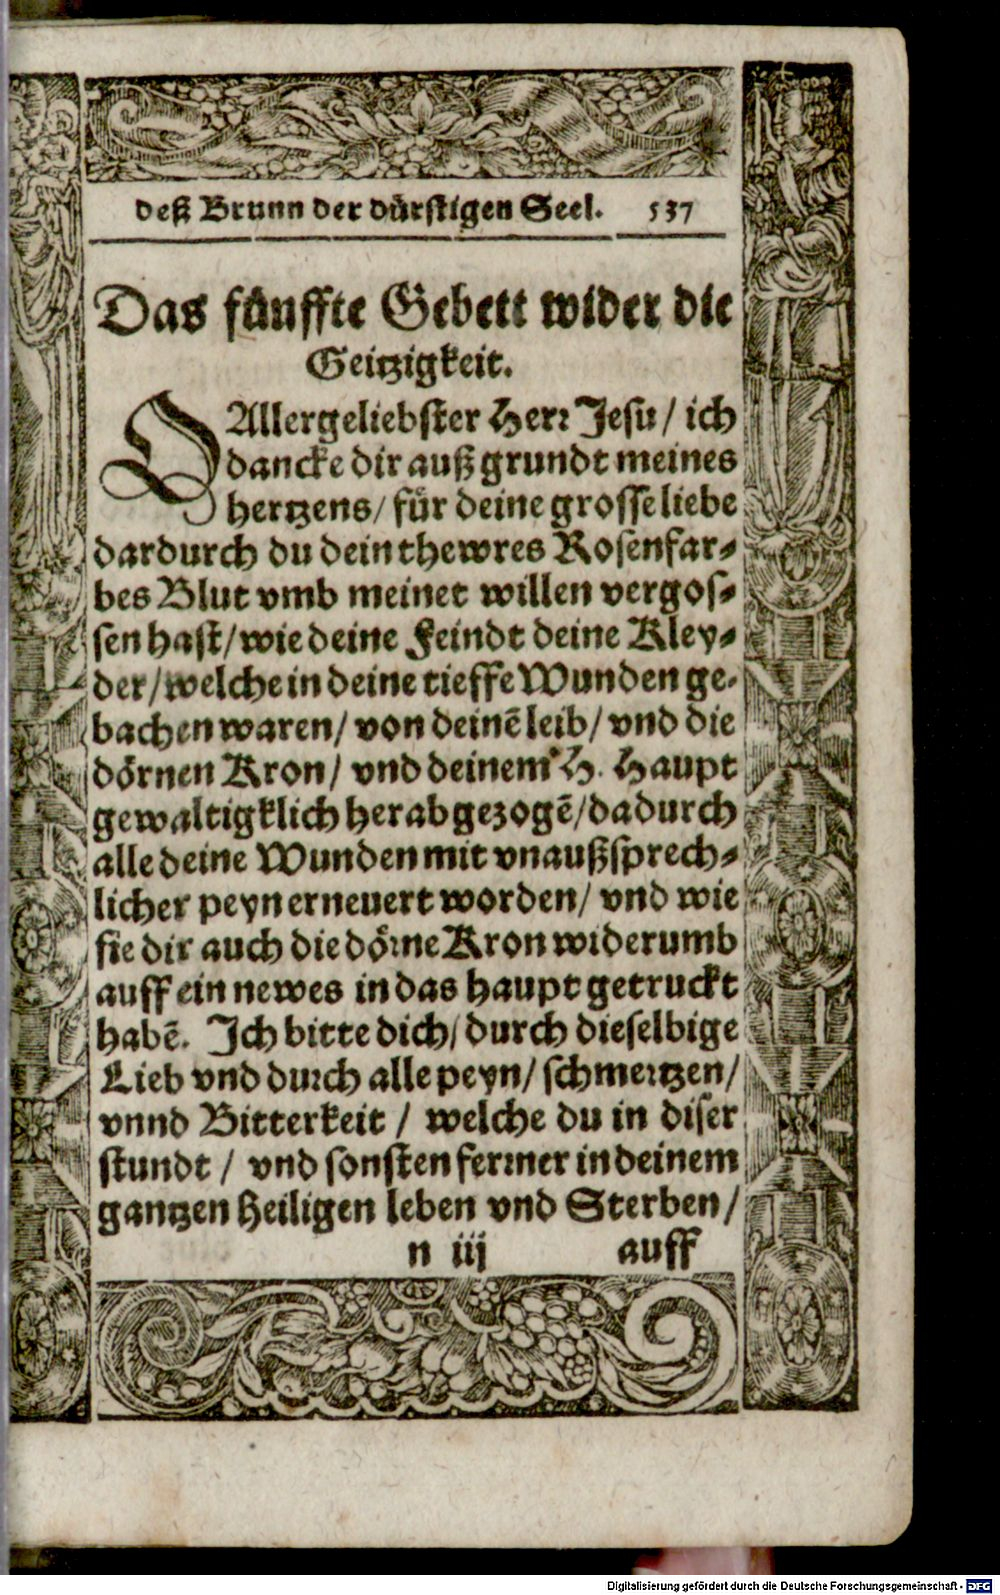 deß Brunn der dürstigen Seel. 537
Das fünffte Gebett wider die
Geitzigkeit.
O Allergeliebster Herr Jesu / ich
dancke dir auß grundt meines
hertzens / für deine grosse liebe
dardurch du dein thewres Rosenfar-
bes Blut vmb meinet willen vergos-
sen hast / wie deine Feindt deine Kley-
der / welche in deine tieffe Wunden ge-
bachen waren / von deinē leib / vnd die
dörnen Kron / vnd deinem H. Haupt
gewaltigklich herab gezogē / dadurch
alle deine Wunden mit vnaußsprech-
licher peyn erneuert worden / vnd wie
sie dir auch die dörne Kron widerumb
auff ein newes in das haupt getruckt
habē. Ich bitte dich / durch dieselbige
Lieb vnd durch alle peyn / schmertzen /
vnnd Bitterkeit / welche du in diser
stundt / vnd sonsten ferrner in deinem
gantzen Heiligen leben vnd Sterben /
n iij auff
Digitalisierung gefördert durch die Deutsche Forschungsgemeinschaft - DFG